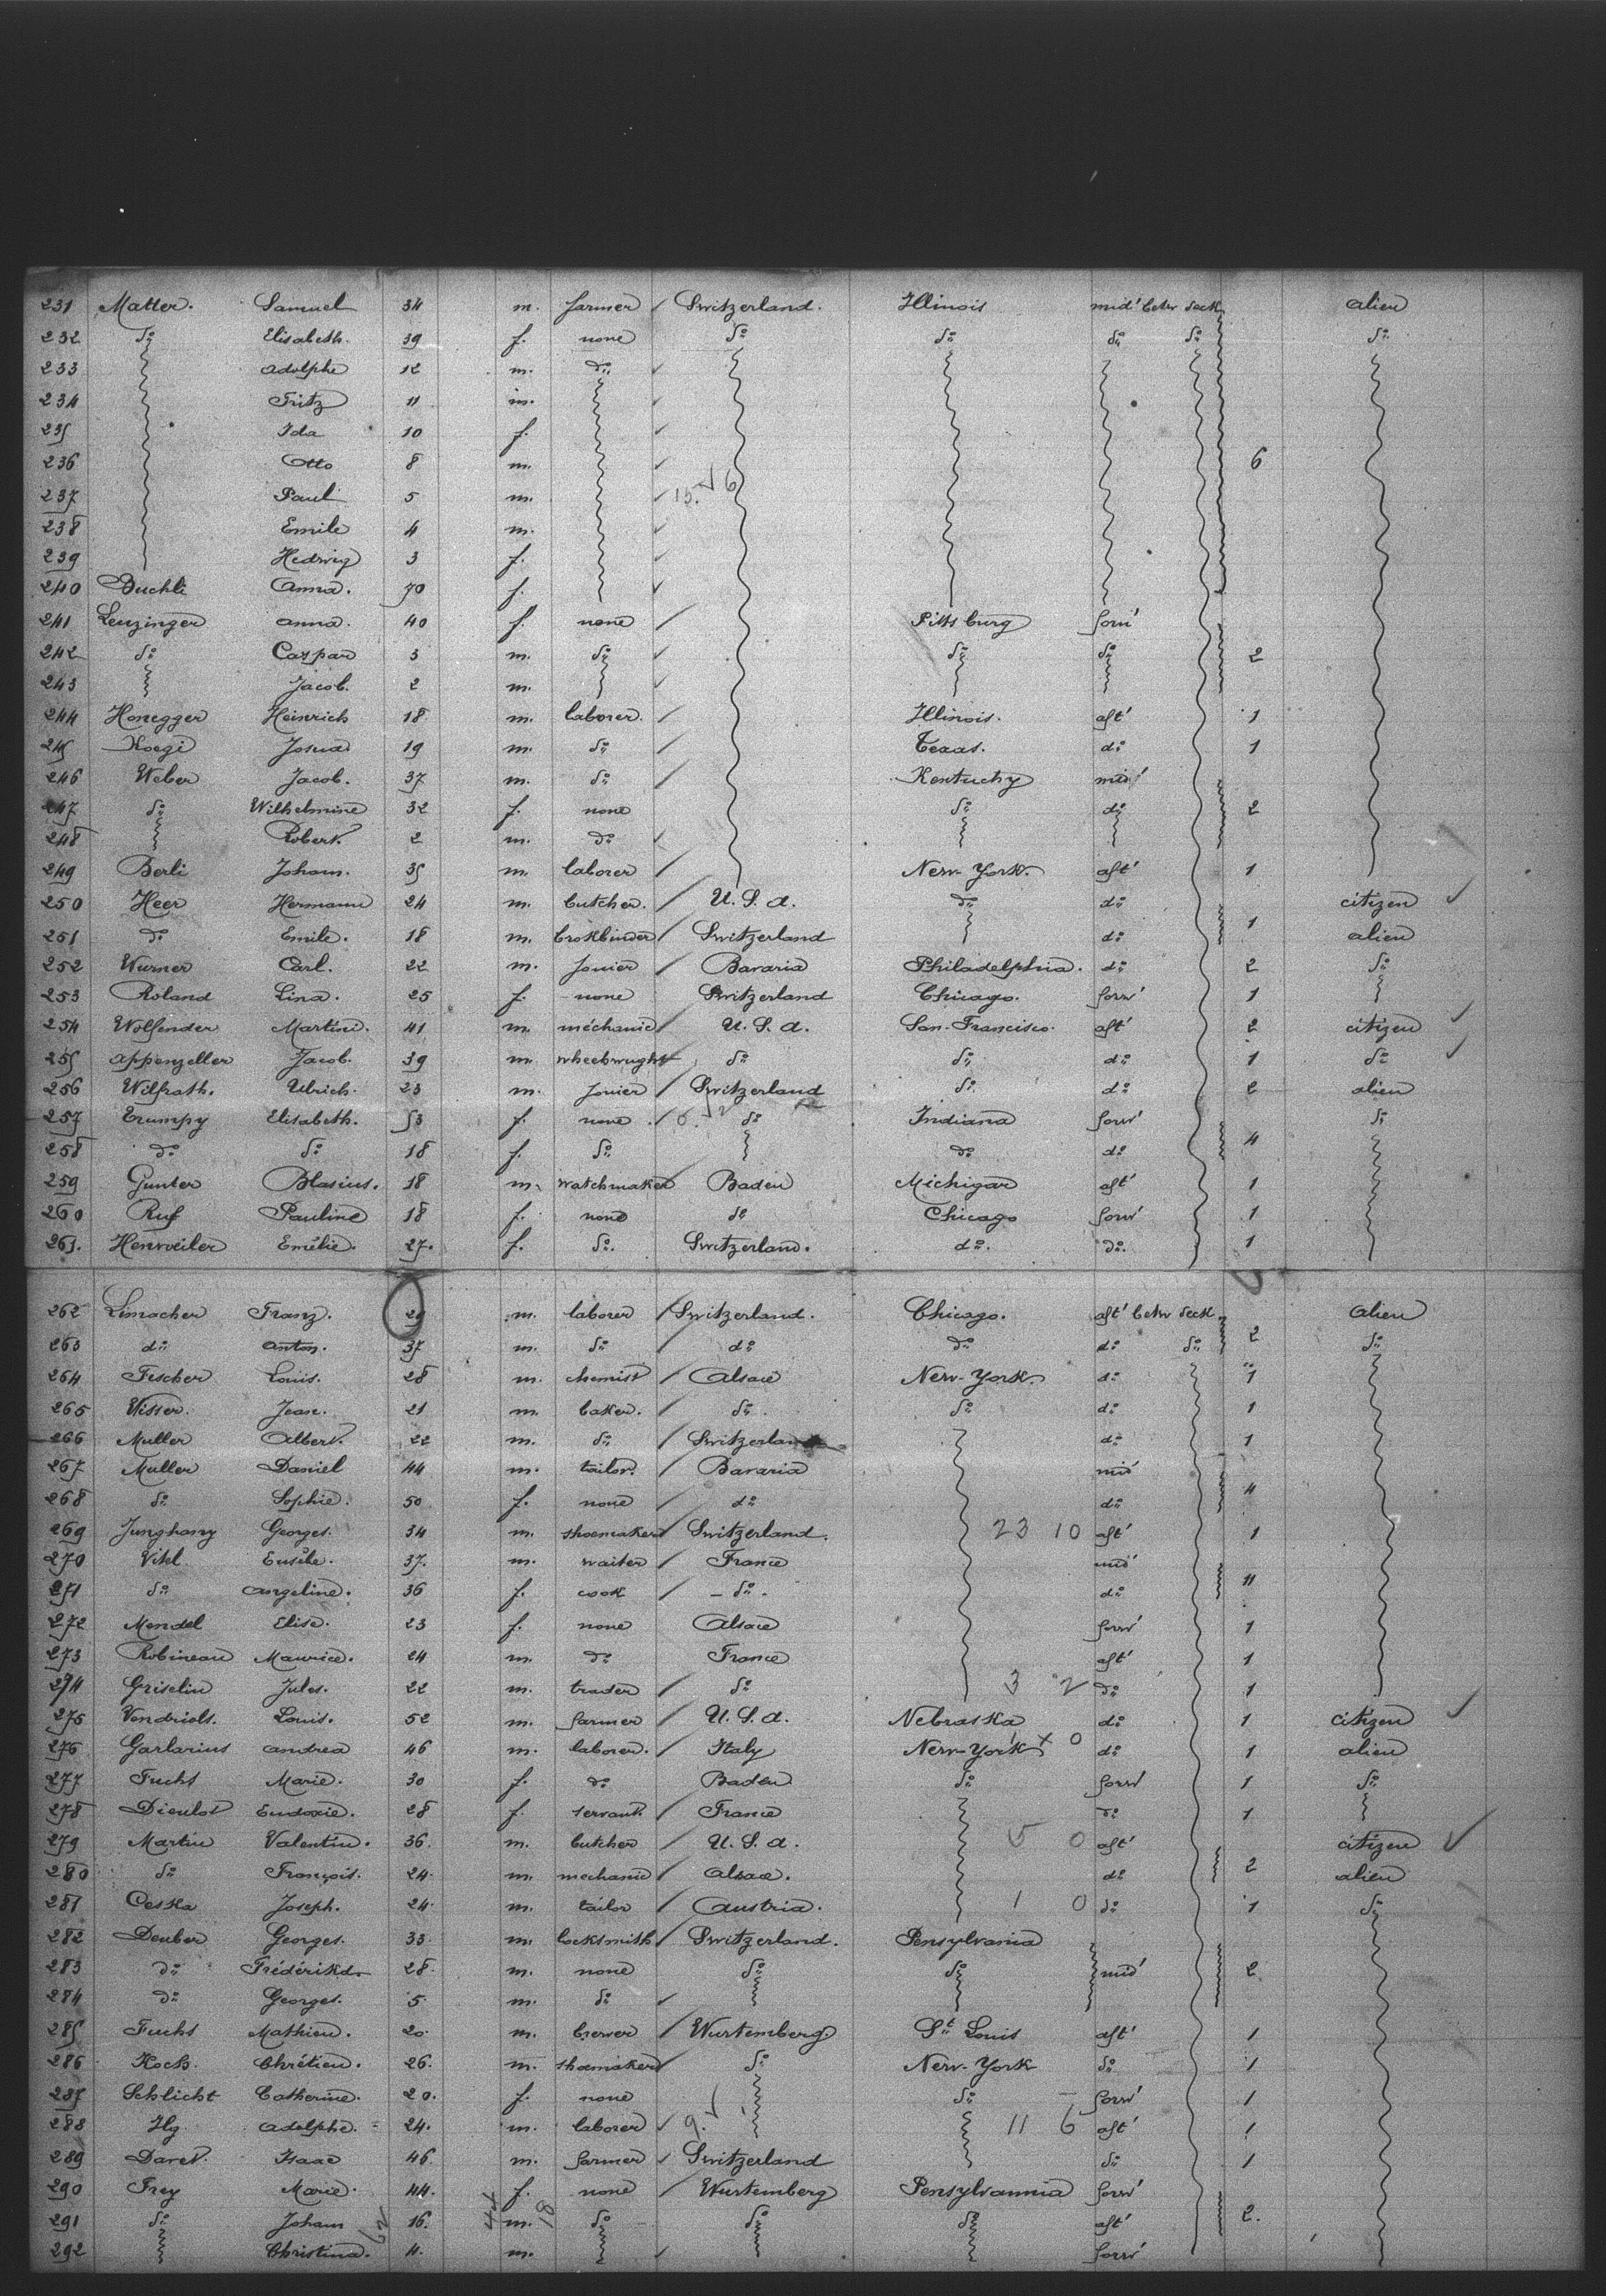 231 Matter. Samuel 34 m. farmer Switzerland. Illinois mid' betw deck alien
232 do Elisabeth. 39 f. none do do do do do
233 Adolphe 12 m. do
234 Fritz 11 m.
235 Ida 10 f.
236 Otto 8 m. 6
237 Paul 5 m. 15. 6
238 Emile 4 m.
239 Hedwig 3 f.
240 Buchli Anna. 70 f.
241 Leuzinger Anna. 40 f. none Pittsburg forw'
242 do Caspar 3 m. do do do 2
243 Jacob. 2 m.
244 Honegger Heinrich 18 m. laborer. Illinois. aft' 1
245 Koegi Josua 19 m. do Texas. do 1
246 Weber Jacob. 37 m. do Kentuchy mid'
247 do Wilhelmine 32 f. none do do 2
248 Robert. 2 m. do
249 Berli Joham. 35 m. laborer New-York. aft' 1
250 Heer Hermann 24 m. butcher. U. S. A. do do citizen
251 do Emile. 18 m. brokbinder Switzerland do 1 alien
252 Wurner Carl. 22 m. Jonier Bavaria Philadelphia. do 2 do
253 Roland Lina. 25 f. none Switzerland Chicago. forw' 1
254 Wolfender Martin. 41 m. méchanic U. S. A. San-Francisco. aft' 2 citizen
255 Appenzeller Jacob. 39 m. wheelwright do do do 1 do
256 Wilfrath. Ulrich. 23 m. Jonier Switzerland do do 2 alien
257 Trumpy Elisabeth. 53 f. none 6. 2 do Indiana forw' do
258 do do 18 f. do do do 4
259 Gunter Blasius. 18 m. watchmaker Baden Michigan aft' 1
260 Ruf Pauline 18 f. none do Chicago forw' 1
261. Henweiler Emélie. 27. f. do. Switzerland. do. do. 1
262 Limacher Franz. 29 m. laborer Switzerland. Chicago. aft' betw deck. alien
263 do Anton. 37 m. do do do do do 2 do
264 Fischer Louis. 28 m. chemist Alsace New-York. do 1
265 Wisser. Jean. 21 m. baker. do. do do 1
266 Muller Albert. 22 m. do Switzerland do 1
267 Muller Daniel 44 m. tailor. Bavaria mid
268 do Sophie. 50 f. none do do 4
269 Junghany Georges. 34 m. shoemaker Switzerland. 23 10 aft' 1
270 Vitel Eusèbe. 37. m. waiter France mid'
271 do Angeline. 36 f. cook do. do 11
272 Mendel Elise. 23 f. none Alsace forw' 1
273 Robineau Maurice. 24 m. do France aft' 1
274 Griselin Jules. 22 m. trader do 3 2 do 1
275 Vendriols. Louis. 52 m. farmer U. S. A. Nebraska do 1 citizen
276 Garlarius Andrea 46 m. laborer. Italy New-York 1 x 0 do 1 alien
277 Fuchs Marie. 30 f. do Baden do forw' 1 do
278 Dieulot Eudoxie. 28 f. servant France do 1
279 Martin Valentin. 36. m. butcher U. S. A. 5 0 aft' citizen
280 do François. 24. m. mechanic Alsace. do 2 alien
281 Ceska Joseph. 24. m. tailor Austria. 1 0 do 1 do
282 Deuber Georges. 33. m. locksmith Switzerland. Pensylvania
283 do Frédérikd. 28. m. none do do mid' 2
284 do Georges. 5. m. do
285 Fuchs Mathieu. 20. m. brewer Wurtemberg. St Louis aft' 1
286 Koch. Chrétien. 26. m. shoemaker do New-York do 1
287 Schlicht Catherine. 20. f. none do forw' 1
288 Hg Adolphe. 24. m. laborer 9. 1 11 6 aft' 1
289 Daret. Isaac 46. m. farmer Switzerland do 1
290 Frey Marie. 44. f. none Wurtemberg Pensylvannia forw'
291 do Joham 16. m. do do do aft' 2.
292 Christina. 4. m. forw'
62 44 18